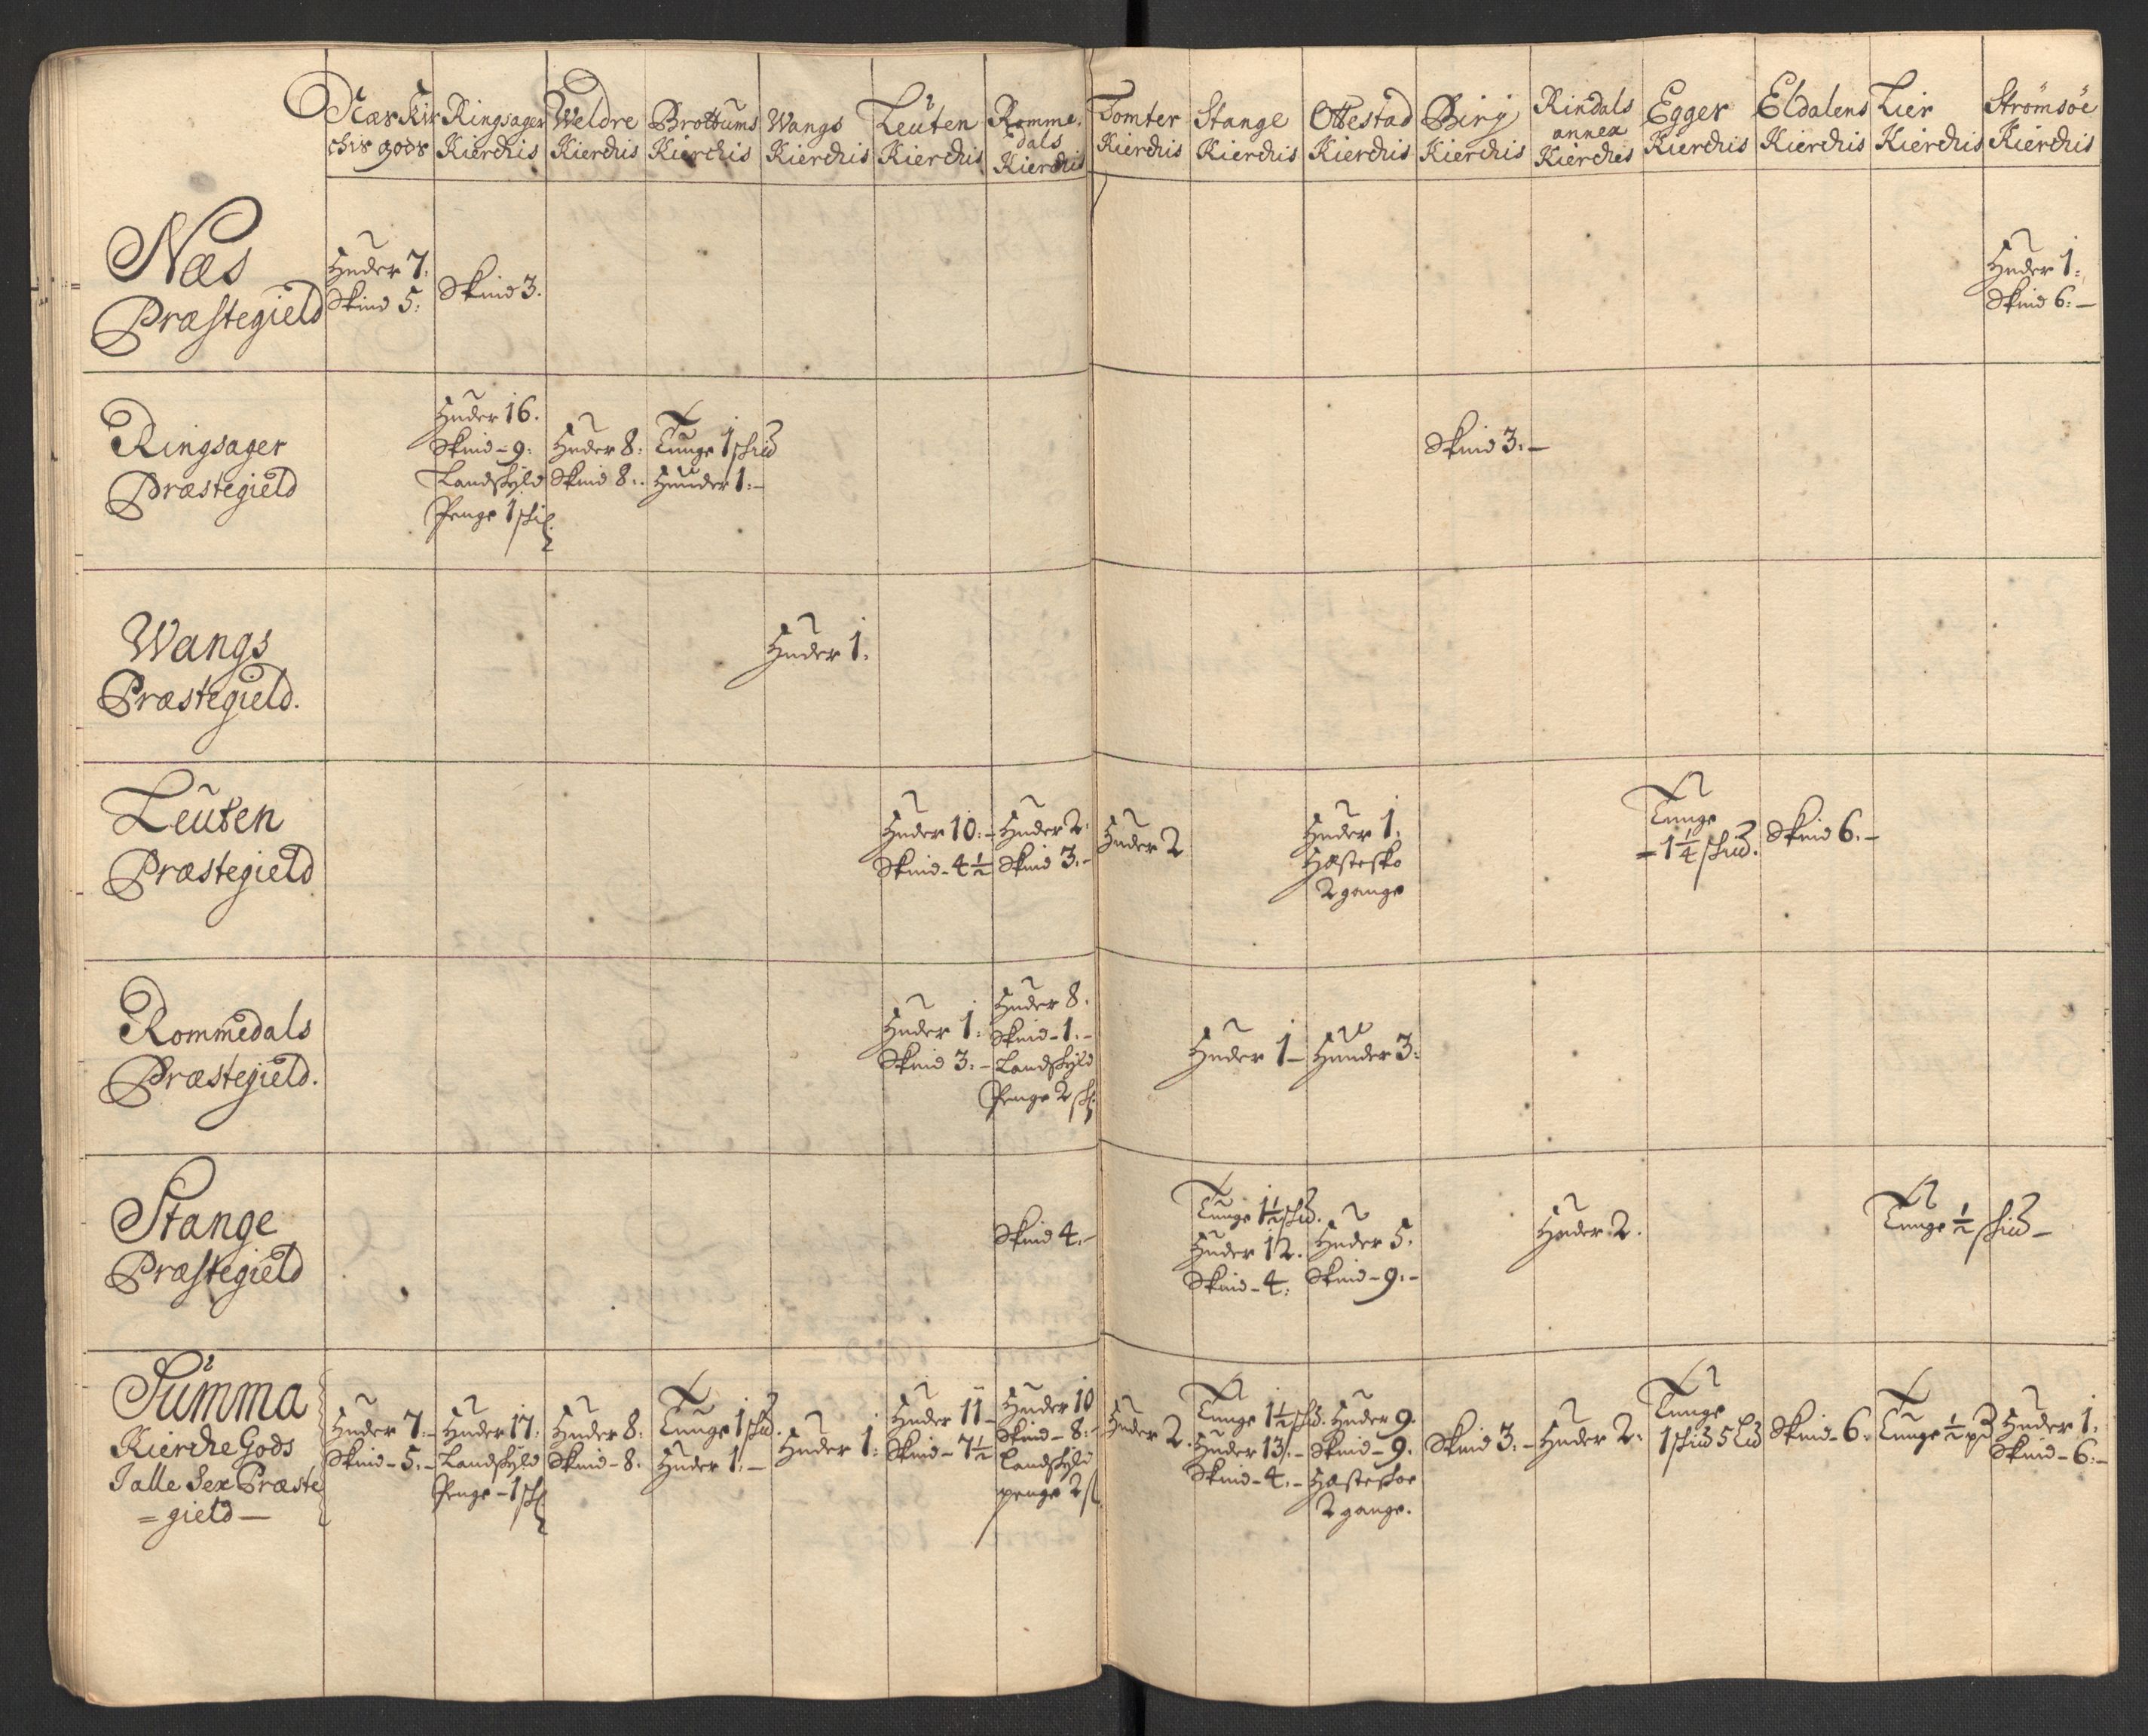 Næs Kir
chis gods
Ringsager
Kierchis
Weldre
Kierchis
Brottums
Kierchis
Wangs
Kierchis
Leuten
Kierchis
Romme
dals
Kierchis
Tomter
Kierchis
Stange
Kierchis
Ottestad
Kierchis
Birj
Kierchis
Rindals
annex
Kierches
Egger
Kierchis
Eldalens
Kierchis
Lier
Kierchis
Strømsøe
Kierchis
Næs
Præstegield
Huder 7.
Skind 5:
Skind 3.
Huder 1:
Skind 6:—
Ringsager
Præstegield
Huder 16.
Skind - 9:
Landskyld
Penge 1
Huder 8:
Skind 8:.
Tunge 1
Huuder 1:—
Skind 3:—
Wangs
Præstegield.
Huder 1.
Leuten
Præstegield
Huder 10:-
Skind - 4½
Huder 2:
Skind 3:-
Huder 2
Huder 1.
Hæstesko
2 gange
Tunge
= 1¼
Skind 6.—
Rommedals
Præstegield.
Huder 1:
Skind 3:-
Huder 8.
Skind - 1.-
Landskyld
Penge 2
Huder 1—
Huuder 3:
Stange
Præstegield
Skind 4.-
Tunge 1½
Huder 12.
Skind - 4:
Huder 5.
Skind - 9:-
Huder 2.
Tunge ½
Summa
Kierche Gods
I alle Sex Præste
= gield —
Huder 7.-
Skind - 5.-
Huder 17:
Landskyld
Penge - 1
Huder 8:
Skind - 8.
Tunge 1
Huder 1:—
Huder 1:
Huder 11
Skind - 7½
Huder 10
Skind - 8:
Landskyld
penge 2
Huder 2.
Tunge 1½
Huder 13:-
Skind - 4.-
Huder 9.
Skind - 9.
Hæsteskoe
2 gange.
Skind 3.-
Huder 2:
Tunge
1
Skind - 6.
Tunge ½
Huder 1.
Skind - 6.-